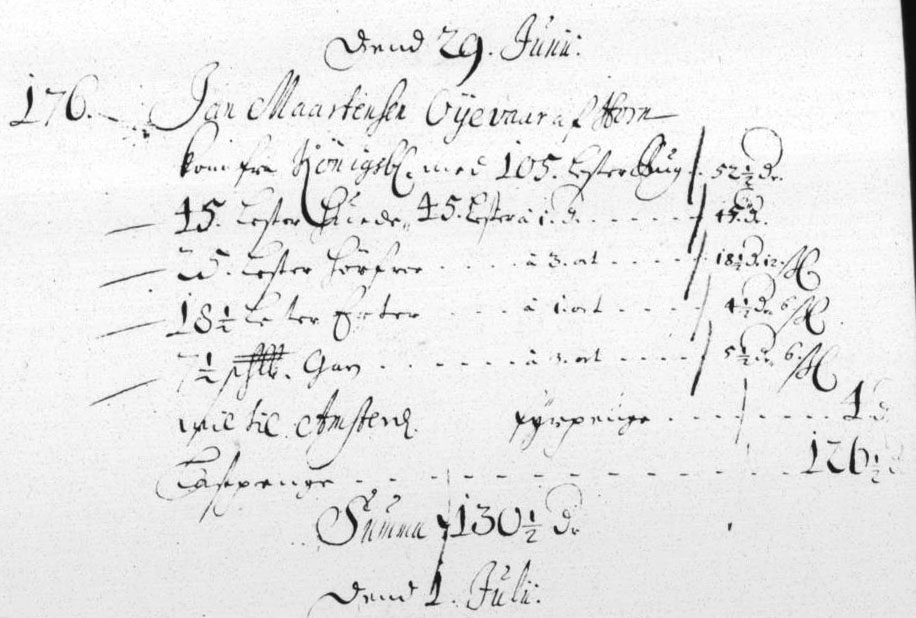 Dend 29. Junii.
176. Jan Maartensen Oyevaar af Horn
kom fra Königsb. med 105. Lester Rug 52½ dr.
45. Lester 45. Lester à 1. d. 45. d.
25. Lester à 3. ort 18½ d. 12 sk
18½ Lester Erter à 1. ort 4½ dr. 6 sk
7½ Garn à 3. ort 5½ dr. 6 sk
vil til Amsterd. fyrpenge 1. d
Lastpenge 126½ d
Summa 130½ dr
Dend 1. Julii.